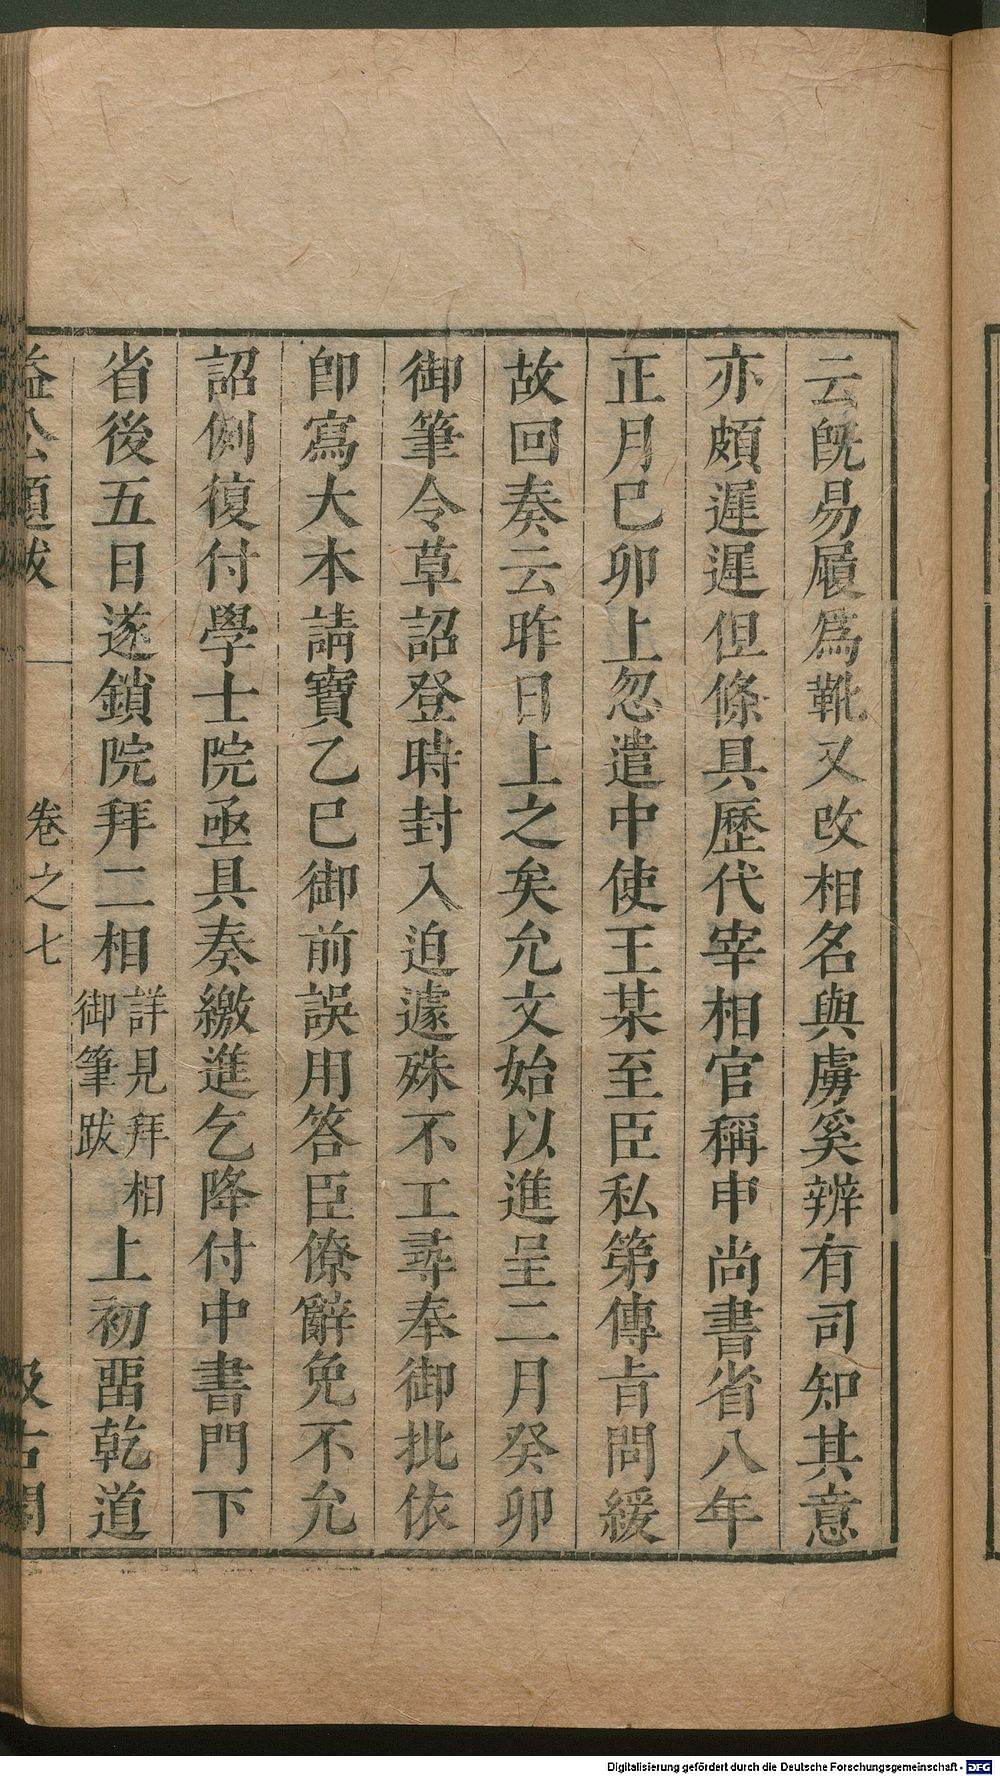 云旣易屨爲靴又改相名與虜奚辨有司知其意
亦頗遲遲但條具歷代宰相官稱申尚書省八年
正月己卯上忽遣中使王某至臣私第傳旨問緩
故回奏云昨日上之矣允文始以進呈二月癸卯
御筆令草詔登時封入迫遽殊不工尋奉御批依
卽寫大本請寶乙巳御前誤用答臣僚辭免不允
詔側復付學士院亟具奏繳進乞降付中書門下
省後五日遂鎖院拜二相詳見拜相御筆跋上初畱乾道
益公題跋 卷之七 汲古閣
Digitalisierung gefördert durch die Deutsche Forschungsgemeinschaft - DFG